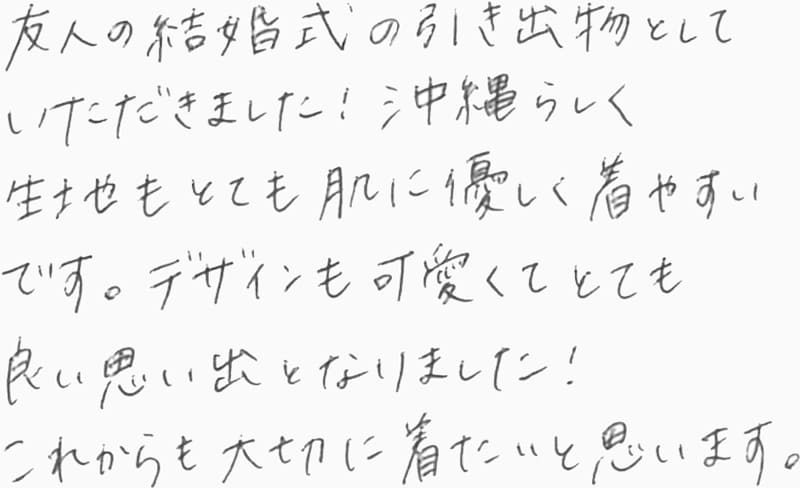 友人の結婚式の引き出物として
いただきました！沖縄らしく
生地もとても肌に優しく着やすい
です。デザインも可愛くてとても
良い思い出となりました！
これからも大切に着たいと思います。